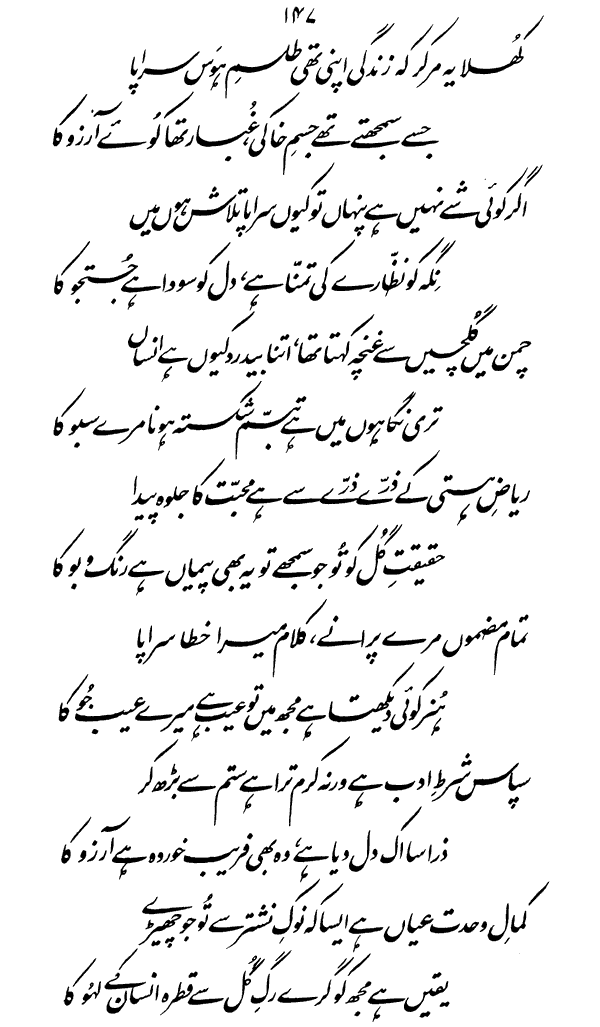 ۱۴۷
کھلا یہ مر کر کہ زندگی اپنی تھی طلسمِ ہوَس سراپا
جسے سمجھتے تھے جسمِ خاکی غُبار تھا کُوئے آرزو کا
اگر کوئی شے نہیں ہے پنہاں تو کیوں سراپا تلاش ہوں میں
نِگہ کو نظّارے کی تمنّا ہے، دل کو سودا ہے جُستجو کا
چمن میں گُلچیں سے غنچہ کہتا تھا، اتنا بیدرد کیوں ہے انساں
تری نگاہوں میں ہے تبسّم شکستہ ہونا مرے سبو کا
ریاضِ ہستی کے ذرّے ذرّے سے ہے محبّت کا جلوہ پیدا
حقیقتِ گُل کو تُو جو سمجھے تو یہ بھی پیماں ہے رنگ و بو کا
تمام مضموں مرے پرانے، کلام میرا خطا سراپا
ہُنر کوئی دیکھتا ہے مجھ میں تو عیب ہے میرے عیب جُو کا
سپاس شرطِ ادب ہے ورنہ کرم ترا ہے ستم سے بڑھ کر
ذرا سا اک دل دیا ہے، وہ بھی فریب خوردہ ہے آرزو کا
کمالِ وحدت عیاں ہے ایسا کہ نوکِ نشتر سے تُو جو چھیڑے
یقیں ہے مجھ کو گرے رگِ گُل سے قطرہ انسان کے لہُو کا